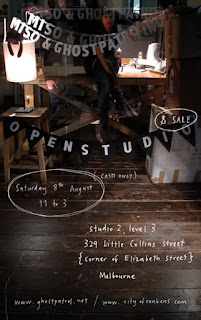 MISO & GHOSTPATROL
MISO & GHOSTPATROL
& SALE
OPENSTUDIO
(CASH ONLY)
Saturday 8th August
11 to 3
studio 2, level 3
329 Little Collins Street
{corner of Elizabeth Street}
Melbourne
www.ghostpatrol.net / www.cityofreubens.com